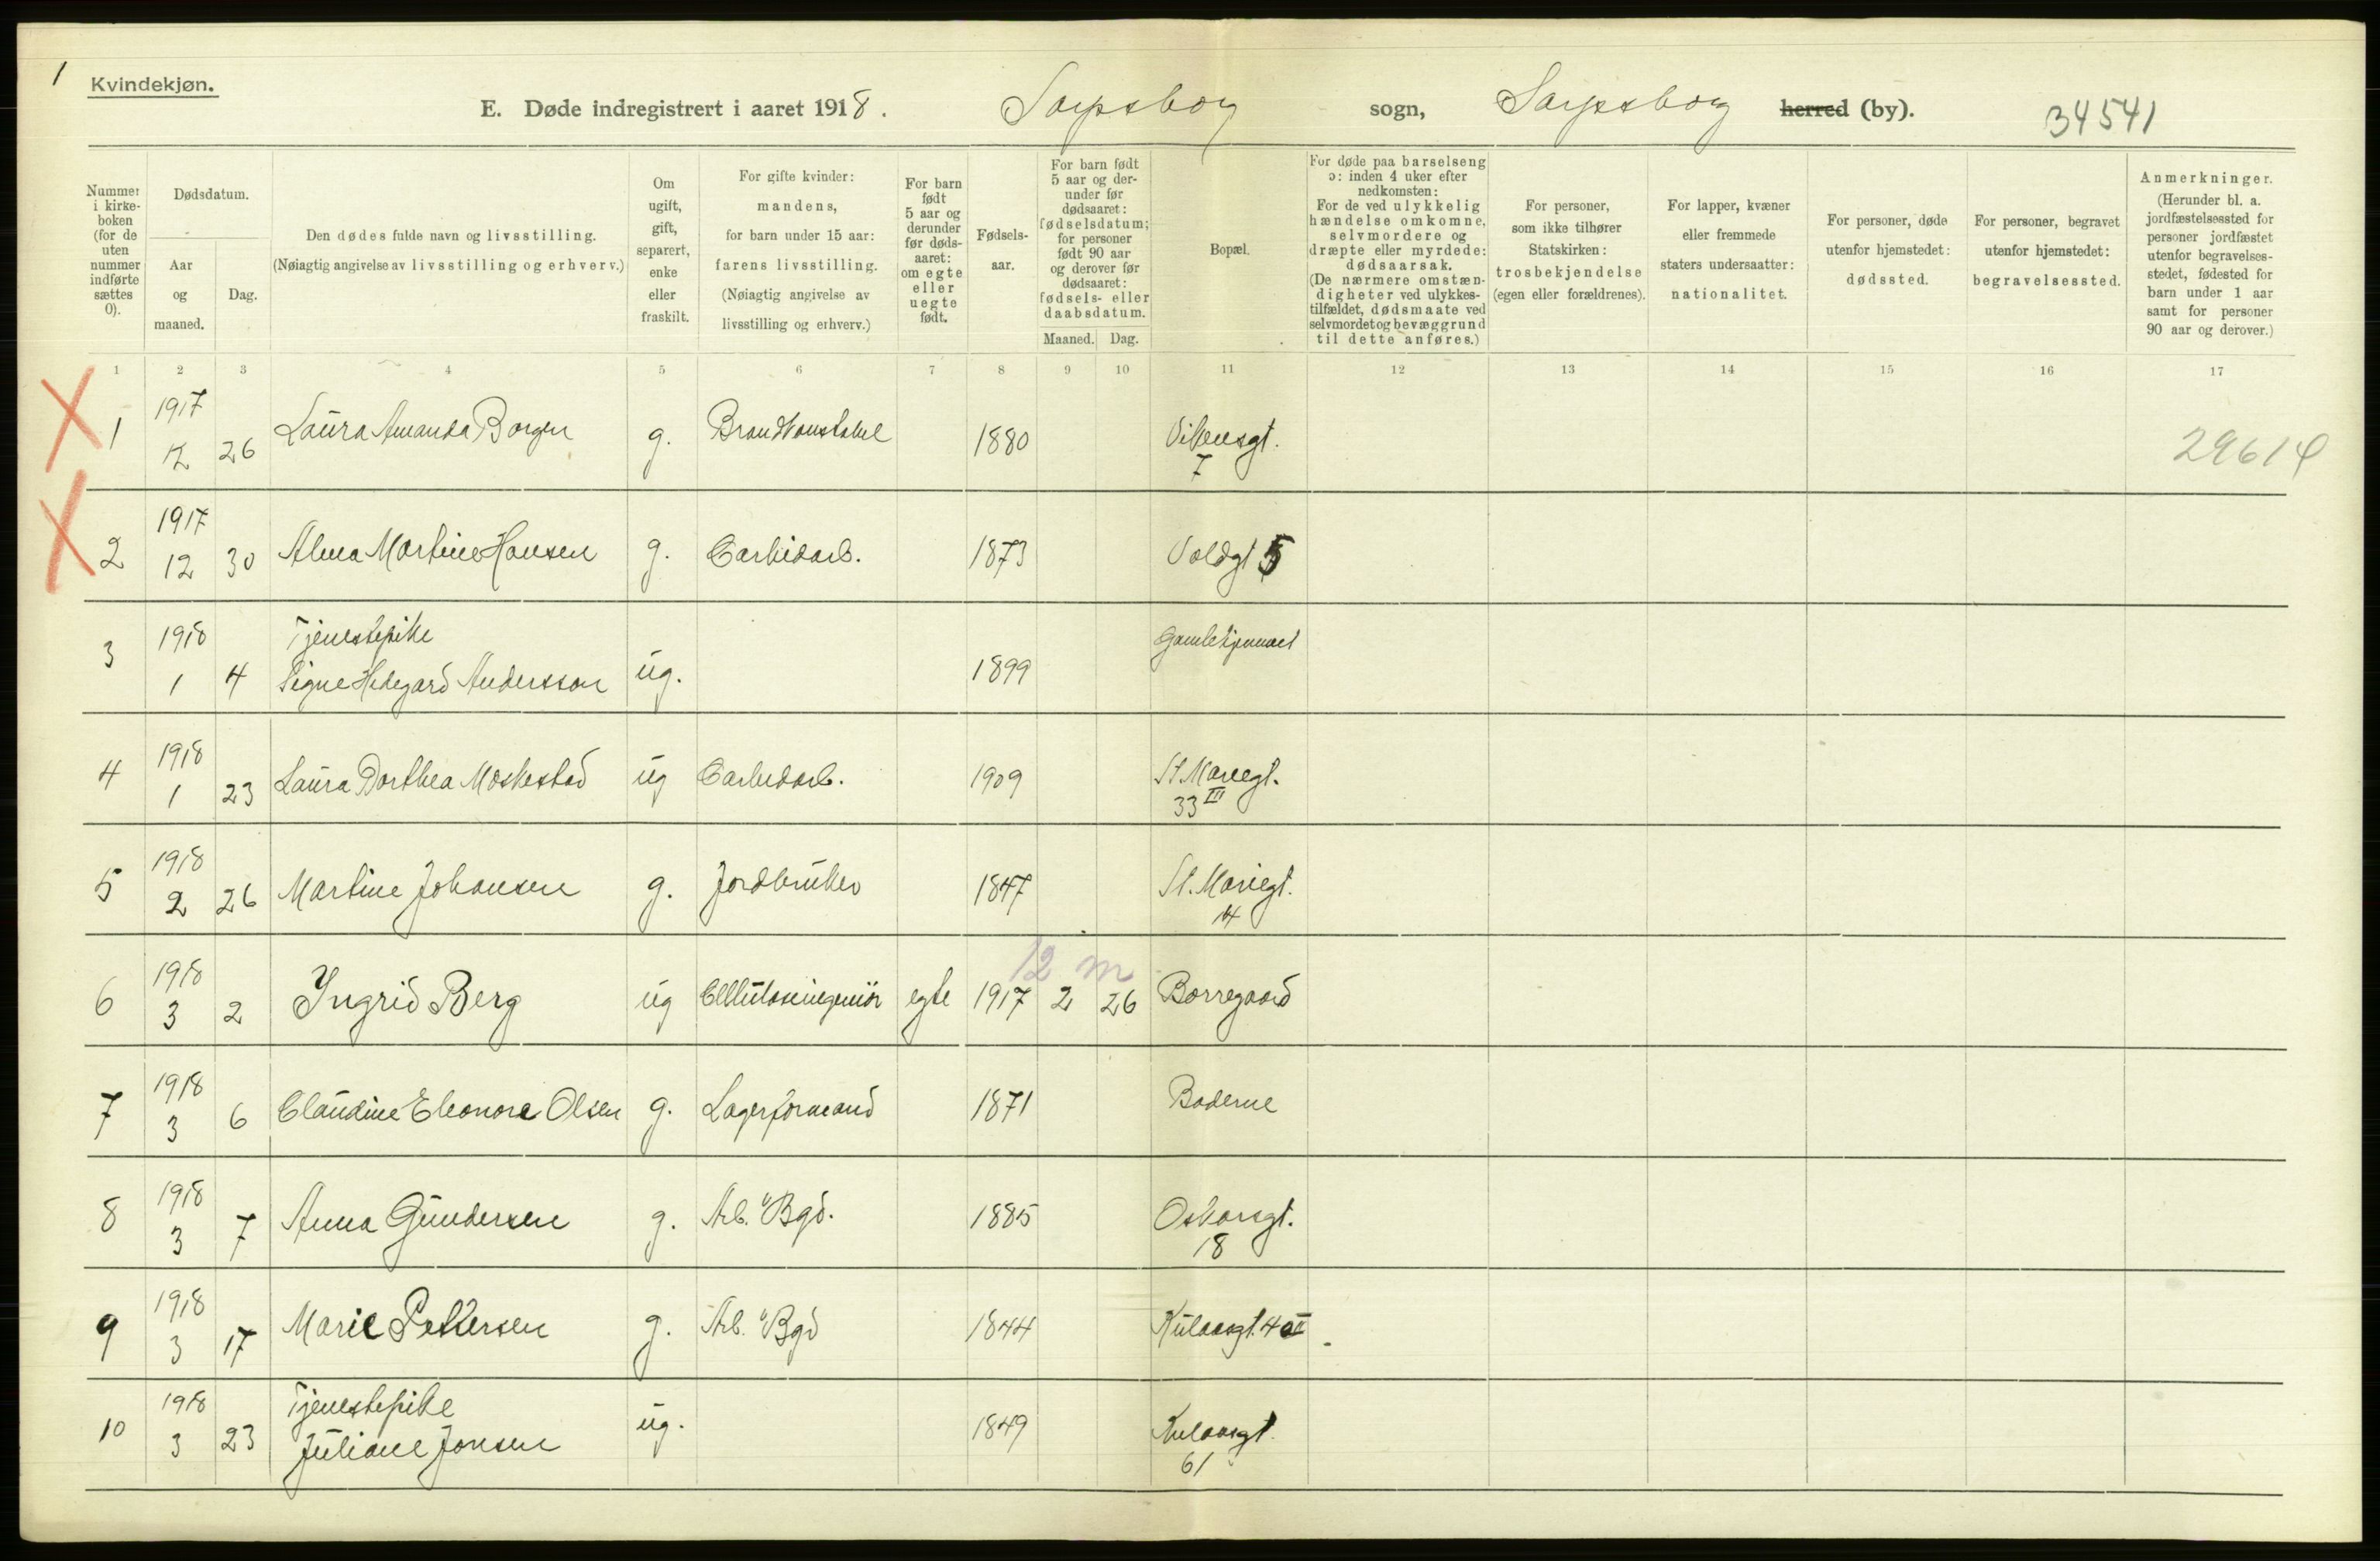 1
Kvindekjøn.
E. Døde indregistrert i aaret 1918. Sarpsborg sogn, Sarpsborg herred (by). 34541
Nummer i kirke-boken (for de uten nummer indførte sættes 0).
Dødsdatum.
Aar og maaned.
Dag.
Den dødes fulde navn og livsstilling.
(Nøiagtig angivelse av livsstilling og erhverv.)
Om ugift, gift, separert, enke eller fraskilt.
For gifte kvinder: mandens, for barn under 15 aar: farens livsstilling. (Nøiagtig angivelse av livsstilling og erhverv.)
For barn født 5 aar og derunder før døds-aaret: om egte eller uegte født.
Fødsels-aar.
For barn født 5 aar og der-under før dødsaaret: fødselsdatum; for personer født 90 aar og derover før dødsaaret: fødsels- eller daabsdatum.
Maaned. Dag.
Bopæl.
For døde paa barselseng ɔ: inden 4 uker efter nedkomsten: For de ved ulykkelig hændelse omkomne, selvmordere og dræpte eller myrdede: dødsaarsak. (De nærmere omstæn-digheter ved ulykkes-tilfældet, dødsmaate ved selvmordet og bevæggrund til dette anføres.)
For personer, som ikke tilhører Statskirken: trosbekjendelse (egen eller forældrenes).
For lapper, kvæner eller fremmede staters undersaatter: nationalitet.
For personer, døde utenfor hjemstedet: dødssted.
For personer, begravet utenfor hjemstedet: begravelsessted.
Anmerkninger. (Herunder bl. a. jordfæstelsessted for personer jordfæstet utenfor begravelses-stedet, fødested for barn under 1 aar samt for personer 90 aar og derover.)
1 2 3 4 5 6 7 8 9 10 11 12 13 14 15 16 17
1 1917 12 26 Laura Amanda Borgen g. Brandkonstabel 1880 Vikensgt. 7 29614
2 1917 12 30 Alma Martine Hansen g. Carbidarb. 1873 Voldgt 5
3 1918 1 4 Tjenestepike
Signe Hedegard Andersson ug. 1899
4 1918 1 23 Laura Dorthea Moskestad ug Carbidarb. 1909 St. Mariegt. 33 III
5 1918 2 26 Martine Johansen g. Jordbruker 1847 St. Mariegt. 14
12 m
6 1918 3 2 Ingrid Berg ug Celluloseingeniør egte 1917 2 26 Borregaard
7 1918 3 6 Claudine Eleonore Olsen g. Lagerformand 1871 Boderne
8 1918 3 7 Anna Gundersen g. Arb. v/Bgd. 1885 Oskarsgt. 18
9 1918 3 17 Marie Pettersen g. Arb. v/Bgd 1844 Kulaasgt. 40 II
10 1918 3 23 Tjenestepike
Juliane Jonsen ug. 1849 Kulaasgt. 61